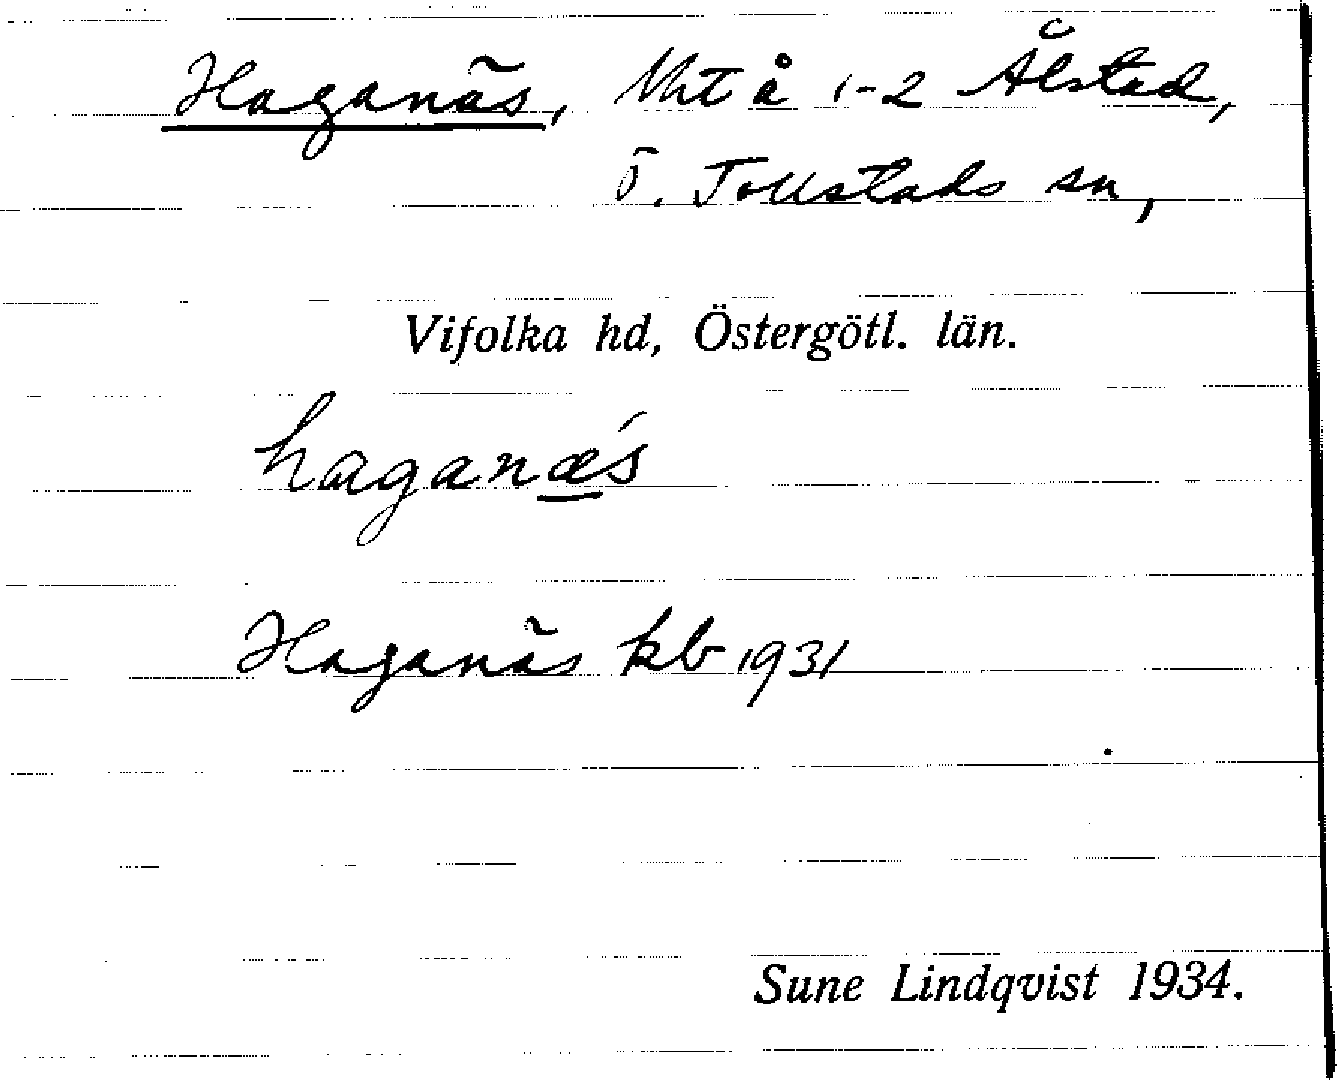 Haganäs, Unt å 1-2 Ålstad,
Ö. Tollstads sn,
Vifolka hd, Östergötl. län.
haganæ´s
Haganäs kb 1931
Sune Lindqvist 1934.